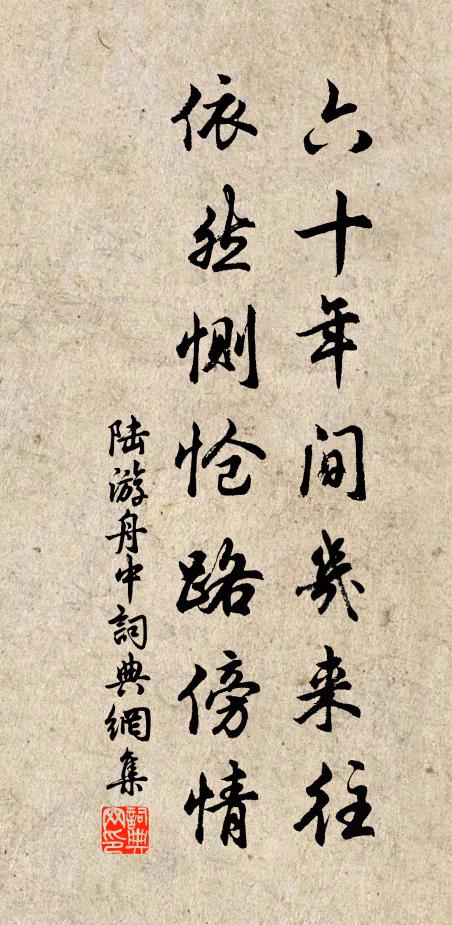 六十年间几来往
依然恻怆路傍情
陆游舟中詞典網集
詞典网印